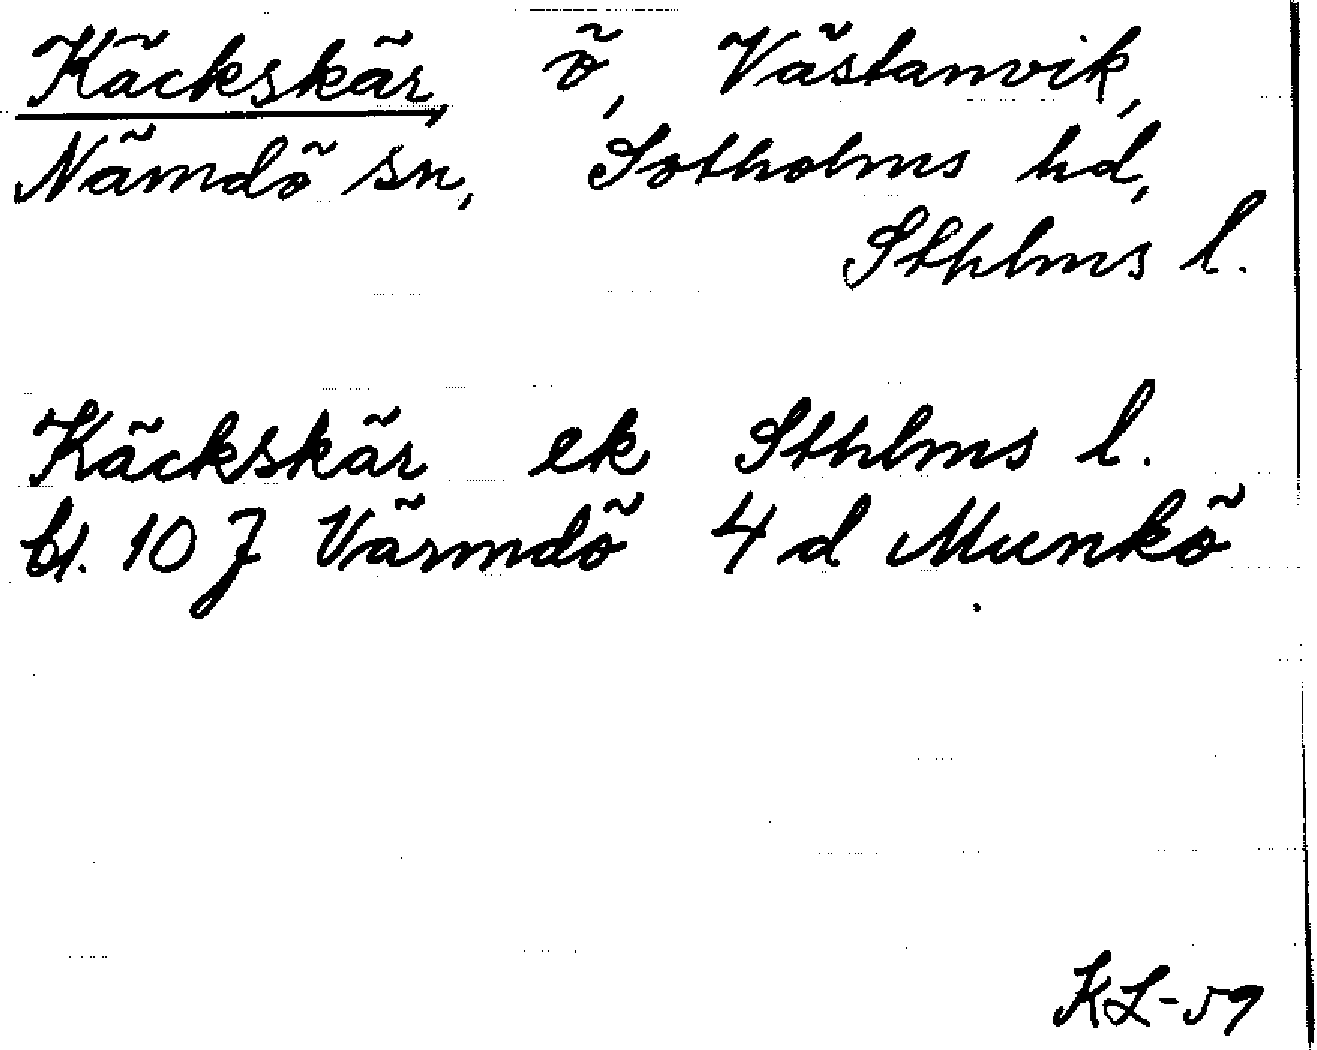 Käckskär, ö, Västanvik,
Nämdö sn, Sotholms hd,
Sthlms l.
Käckskär ek Sthlms l.
bl. 10 J Värmdö 4 d Munkö
KL-59